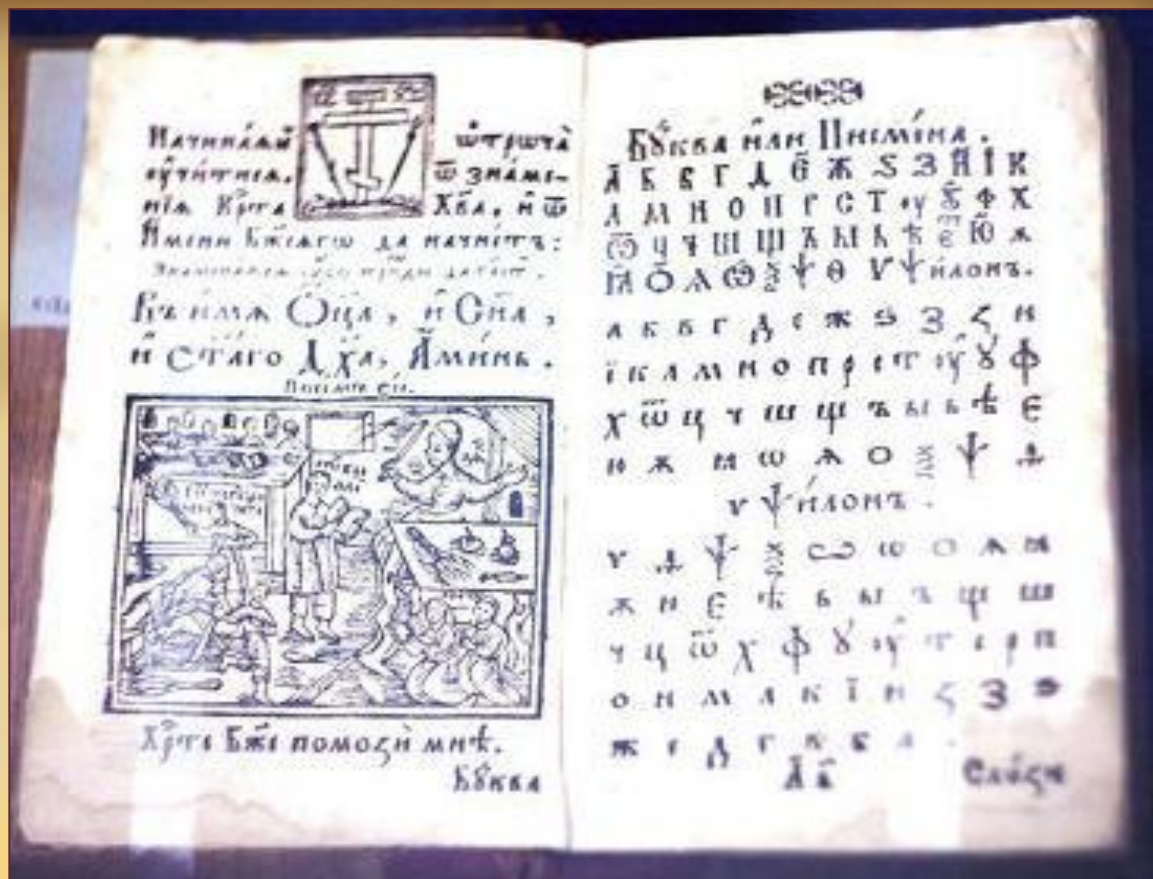 Начина́ѧй ѿтроча̀
ᲂу҆чи́тисѧ. ѿ зна́ме-
нїѧ Кр҃та Хв҃а, и҆ ѿ
И҆мени Бж҃їѧгѡ да начнетъ:
Въ и҆мѧ Ѻ҆ц҃а, и҆ Сн҃а,
и҆ ст҃а́го Дх҃а, А҆ми́нь.
Хр҃те Бж҃е помози́ мнѣ.
Бꙋ́ква
Бꙋ́ква и҆ли Писмена.
А Б В Г Д Е Ж Ѕ З И І К
Л М Н О П Р С Т ᲂу Ꙋ Ф Х
Ѿ Ц Ч Ш Щ Ъ Ы Ь Ѣ Є Ю Ѫ
Ꙗ Ѻ Ѧ Ѽ Ѯ Ѱ Ѳ Ѵ ѱи́лонъ.
а б в г д е ж ѕ з и
ї к л м н о п р с т ᲂу ꙋ ф
х ѿ ц ч ш щ ъ ы ь ѣ є
ю ѫ ꙗ ѡ ѧ о ѯ ѱ ѳ
ѵ ѱи́лонъ.
ѵ ѳ ѱ ѯ ѡ о ѧ ꙗ
ѫ ю є ѣ ь ы ъ щ ш
ч ц ѿ х ф ꙋ ᲂу т с р п
о н м л к ї и з ѕ
ж е д г в б а.
а҃ в҃ Сло́зи